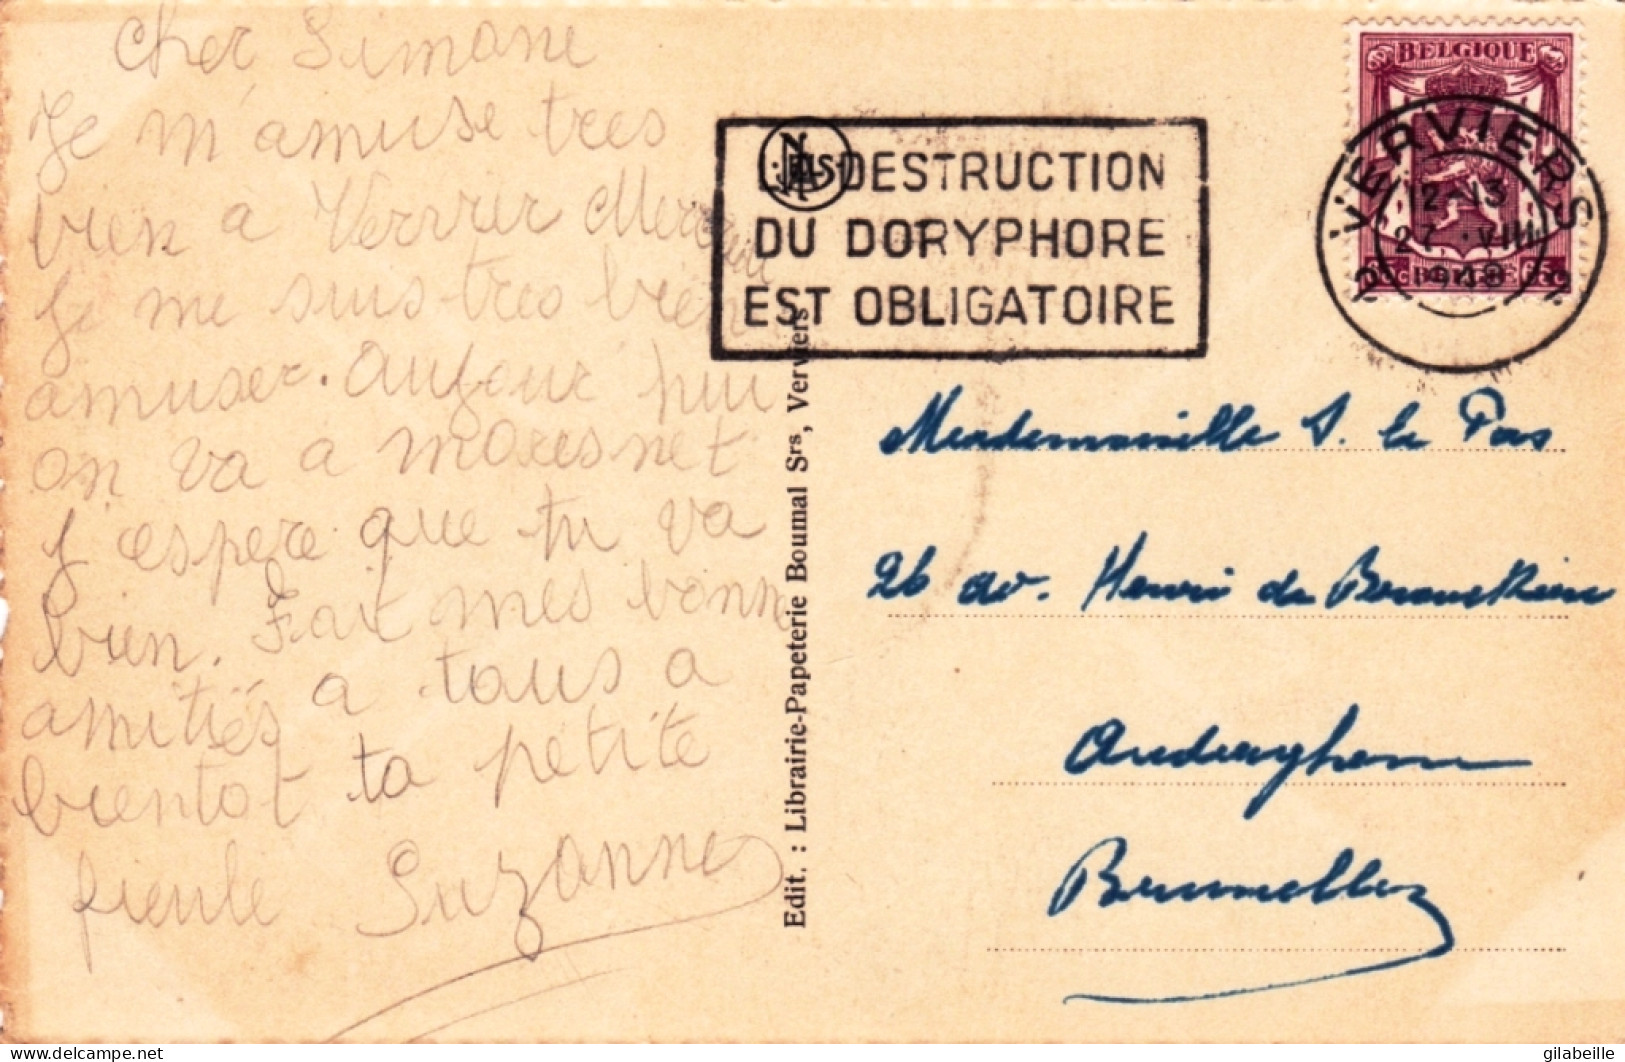 cher Simone
Je m'amuse tres
bien a Vervier Mercredi
Je me suis tres bien
amuser. Aujour hui
on va a moresnet
J'espere que tu va
bien. Fait mes bonne
amitiés a tous a
bientot ta petite
Suzanne
Edit. : Librairie-Papeterie Boumal Srs, Verviers
NELS
LA DESTRUCTION
DU DORYPHORE
EST OBLIGATOIRE
BELGIQUE
VERVIERS
12-13
27 · VIII
1948
2 2
65c BELGIE 65c
Mademoiselle S. le Pas
26 av. Henri de Brouckère
Auderghem
Bruxelles
delcampe.net
gilabeille